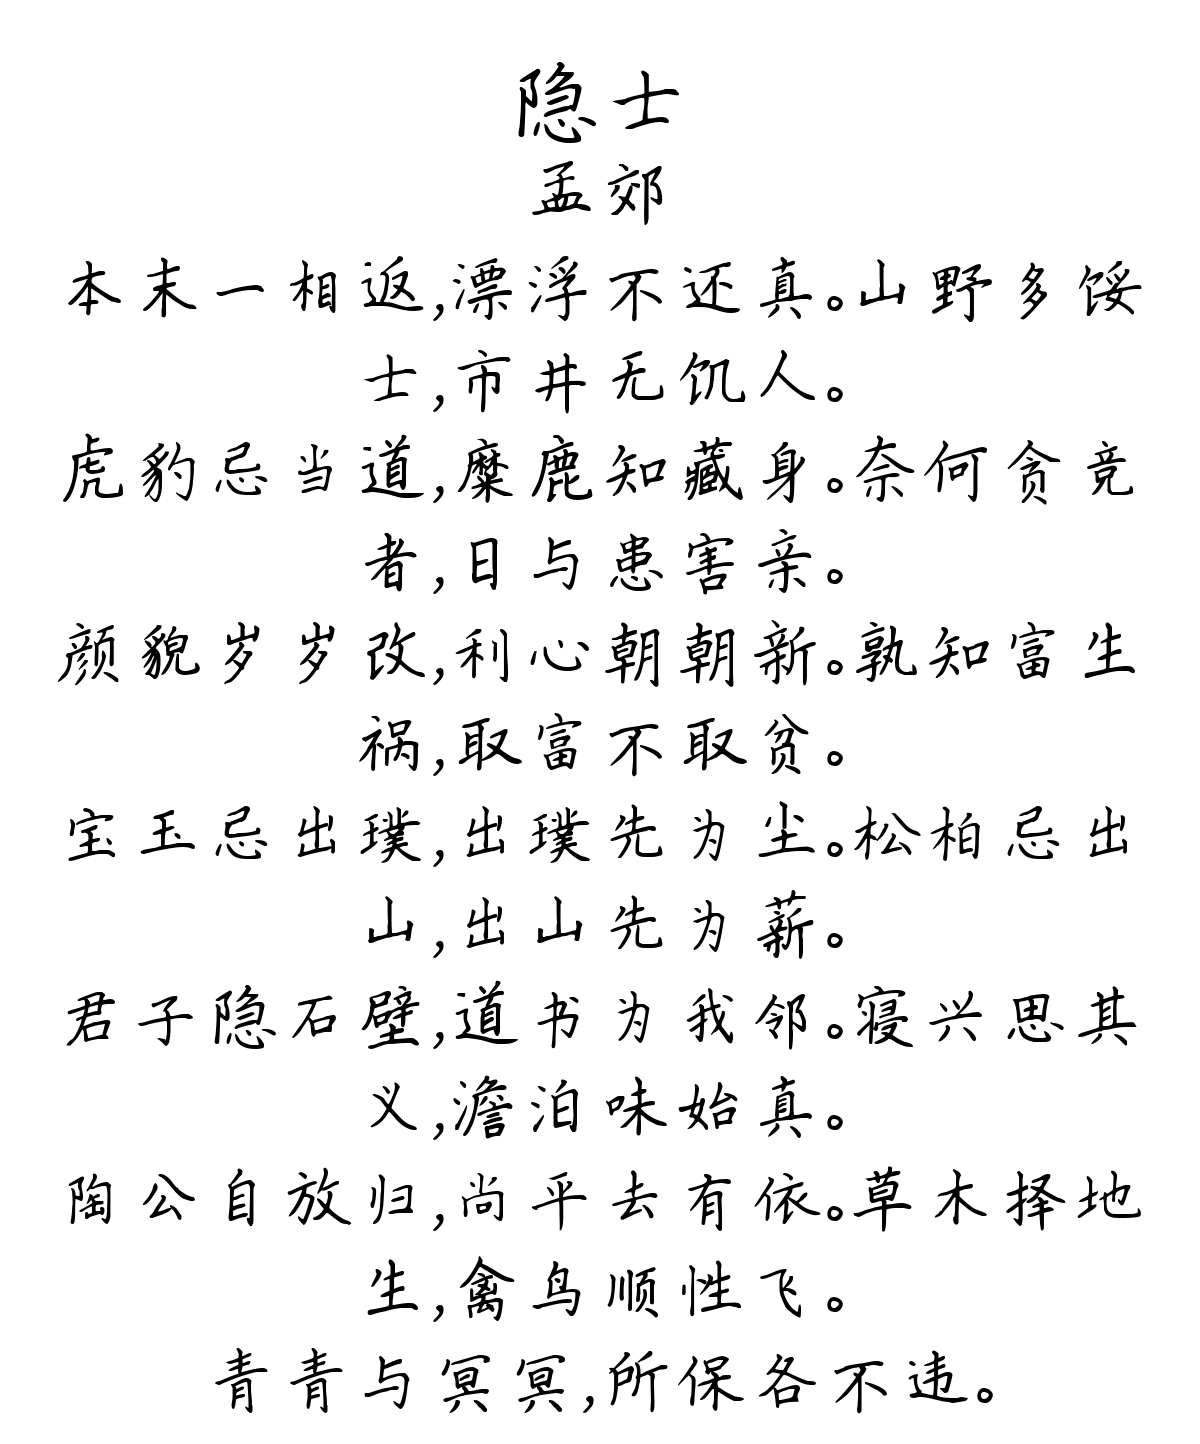 隐士
孟郊
本末一相返,漂浮不还真。山野多馁
士,市井无饥人。
虎豹忌当道,糜鹿知藏身。奈何贪竞
者,日与患害亲。
颜貌岁岁改,利心朝朝新。孰知富生
祸,取富不取贫。
宝玉忌出璞,出璞先为尘。松柏忌出
山,出山先为薪。
君子隐石壁,道书为我邻。寝兴思其
义,澹泊味始真。
陶公自放归,尚平去有依。草木择地
生,禽鸟顺性飞。
青青与冥冥,所保各不违。